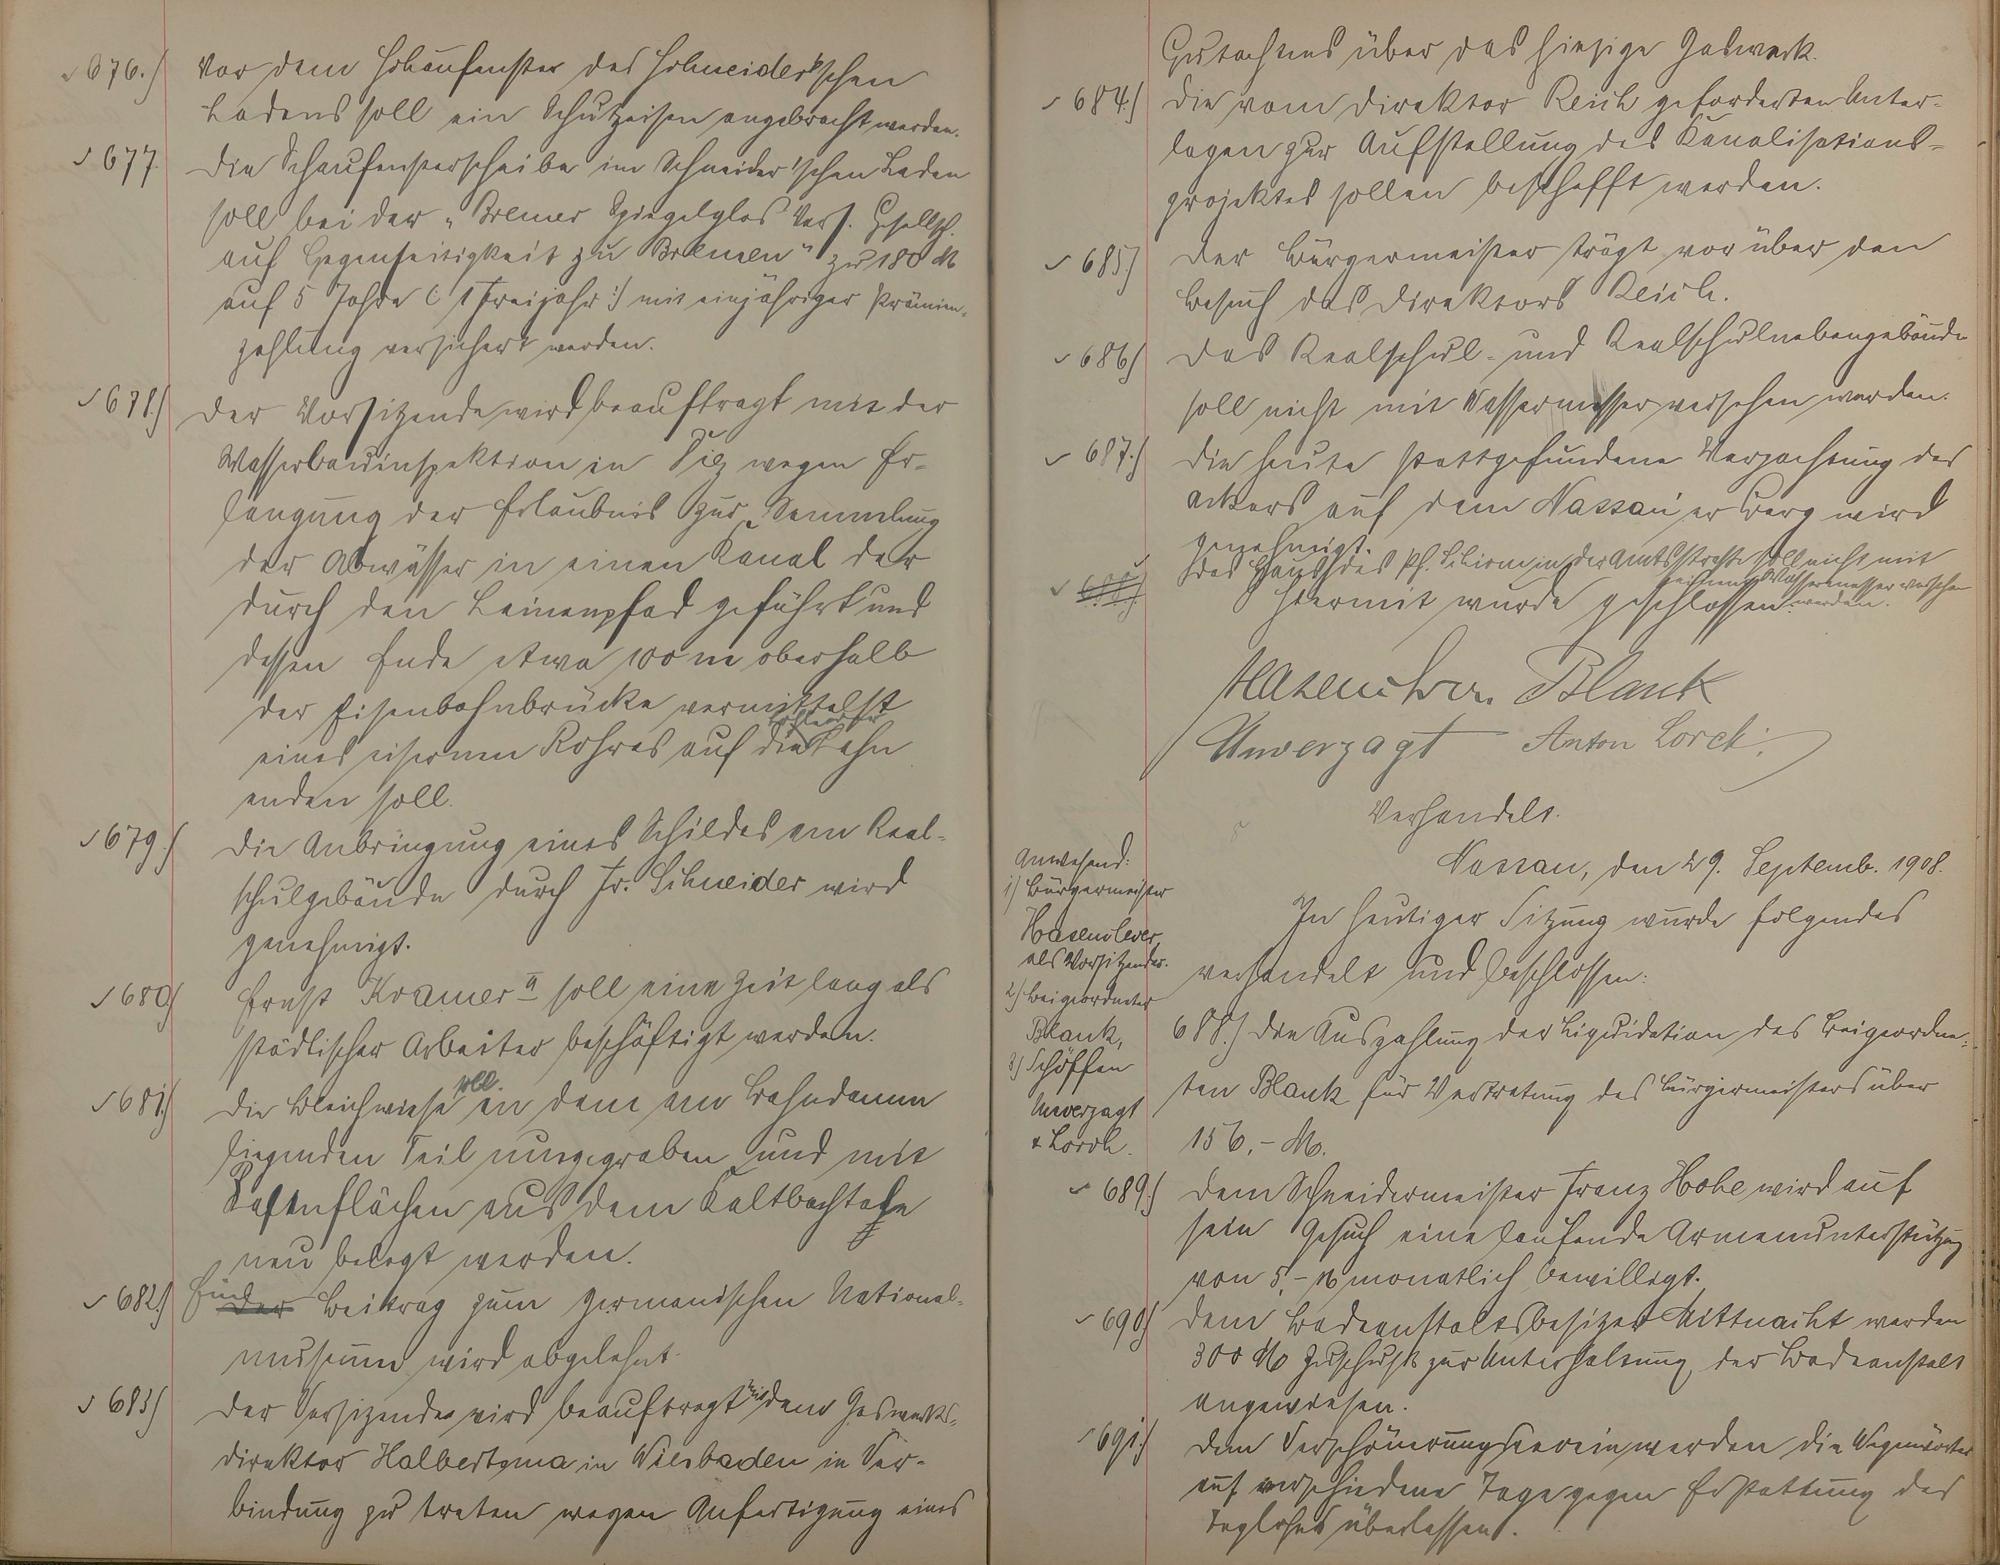 676.) Vor dem Schaufenster des Schneider'schen
Ladens soll ein Schutzeisen angebracht werden.
677. Die Schaufensterscheibe im Schneider'schen Laden
soll bei der „Bremer Spiegelglas Vers. Gesellsch.
auf Gegenseitigkeit zu Bremen" zu 180 M
auf 5 Jahre (: 1 Freijahr :) mit einjähriger Prämien-
zahlung versichert werden.
678.) Der Vorsitzende wird beauftragt mit der
Wasserbauinspektion in Diez wegen Er-
langung der Erlaubnis zur Sammlung
der Abwässer in einen Kanal der
durch den Leinenpfad geführt und
dessen Ende etwa 100 m oberhalb
der Eisenbahnbrücke vermittelst
eines eisernen Rohres auf die Lahn
enden soll.
679.) Die Anbringung eines Schildes am Real-
schulgebäude durch Fr. Schneider wird
genehmigt.
680) Ernst Kramer II soll eine Zeit lang als
städtischer Arbeiter beschäftigt werden.
681.) Die Bleichwiese soll in dem am Bahndamm
liegenden Teil umgegraben und mit
Rasenflächen aus dem Kaltbachtale
neu belegt werden.
682.) Ein der Beitrag zum germanischen National-
museum wird abgelehnt.
683) Der Vorsitzende wird beauftragt mit dem Gaswerks-
direktor Halbertsma in Wiesbaden in Ver-
bindung zu treten wegen Anfertigung eines
Gutachtens über das hiesige Gaswerk.
684.) Die vom Direktor Reich geforderten Unter-
lagen zur Aufstellung des Kanalisations-
projektes sollen beschafft werden.
685.) Der Bürgermeister trägt vor über den
Besuch des Direktors Reich.
686) Das Realschul- und Realschulnebengebäude
soll nicht mit Wassermesser versehen werden.
687.) Die heute stattgefundene Verpachtung des
Ackers auf dem Nassau'er Berg wird
genehmigt.
688.) Das Haus des Ph. in der Amtsstraße soll nicht mit
einem Wassermesser versehen
werden.
Hiermit wurde geschlossen.
Hasenclever. Blank
Unverzagt Anton Lorch.
Verhandelt.
Nassau, den 29. Septemb. 1908.
Anwesend:
1) Bürgermeister
Hasenclever,
als Vorsitzender.
2) Beigeordneter
Blank,
3) Schöffen
Unverzagt
& Lorch.
In heutiger Sitzung wurde folgendes
verhandelt und beschlossen:
688.) Die Auszahlung der Liquidation des Beigeordne-
ten Blank für Vertretung des Bürgermeisters über
156,- M.
689.) Dem Schneidermeister Franz Hohe wird auf
sein Gesuch eine laufende Armenunterstützung
von 5,- M monatlich bewilligt.
690) Dem Badeanstaltsbesitzer Mittnacht werden
300 M Zuschuß zur Unterhaltung der Badeanstalt
angewiesen.
691.) Dem Verschönerungsverein werden die Wegewärter
auf verschiedene Tage gegen Erstattung des
Taglohns überlassen.